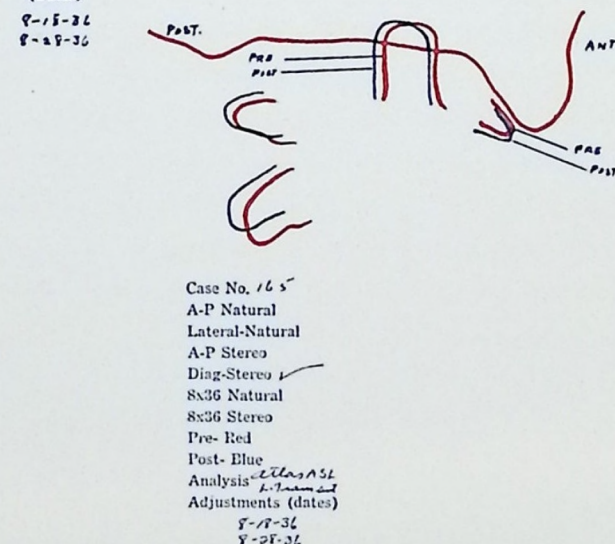 8-18-36
8-28-36
POST.
ANT
PRE
POST
PRE
POST
Case No. 165
A-P Natural
Lateral-Natural
A-P Stereo
Diag-Stereo ✓
8x36 Natural
8x36 Stereo
Pre- Red
Post- Blue
Analysis atlas ASL
Adjustments (dates)
8-18-36
8-28-36